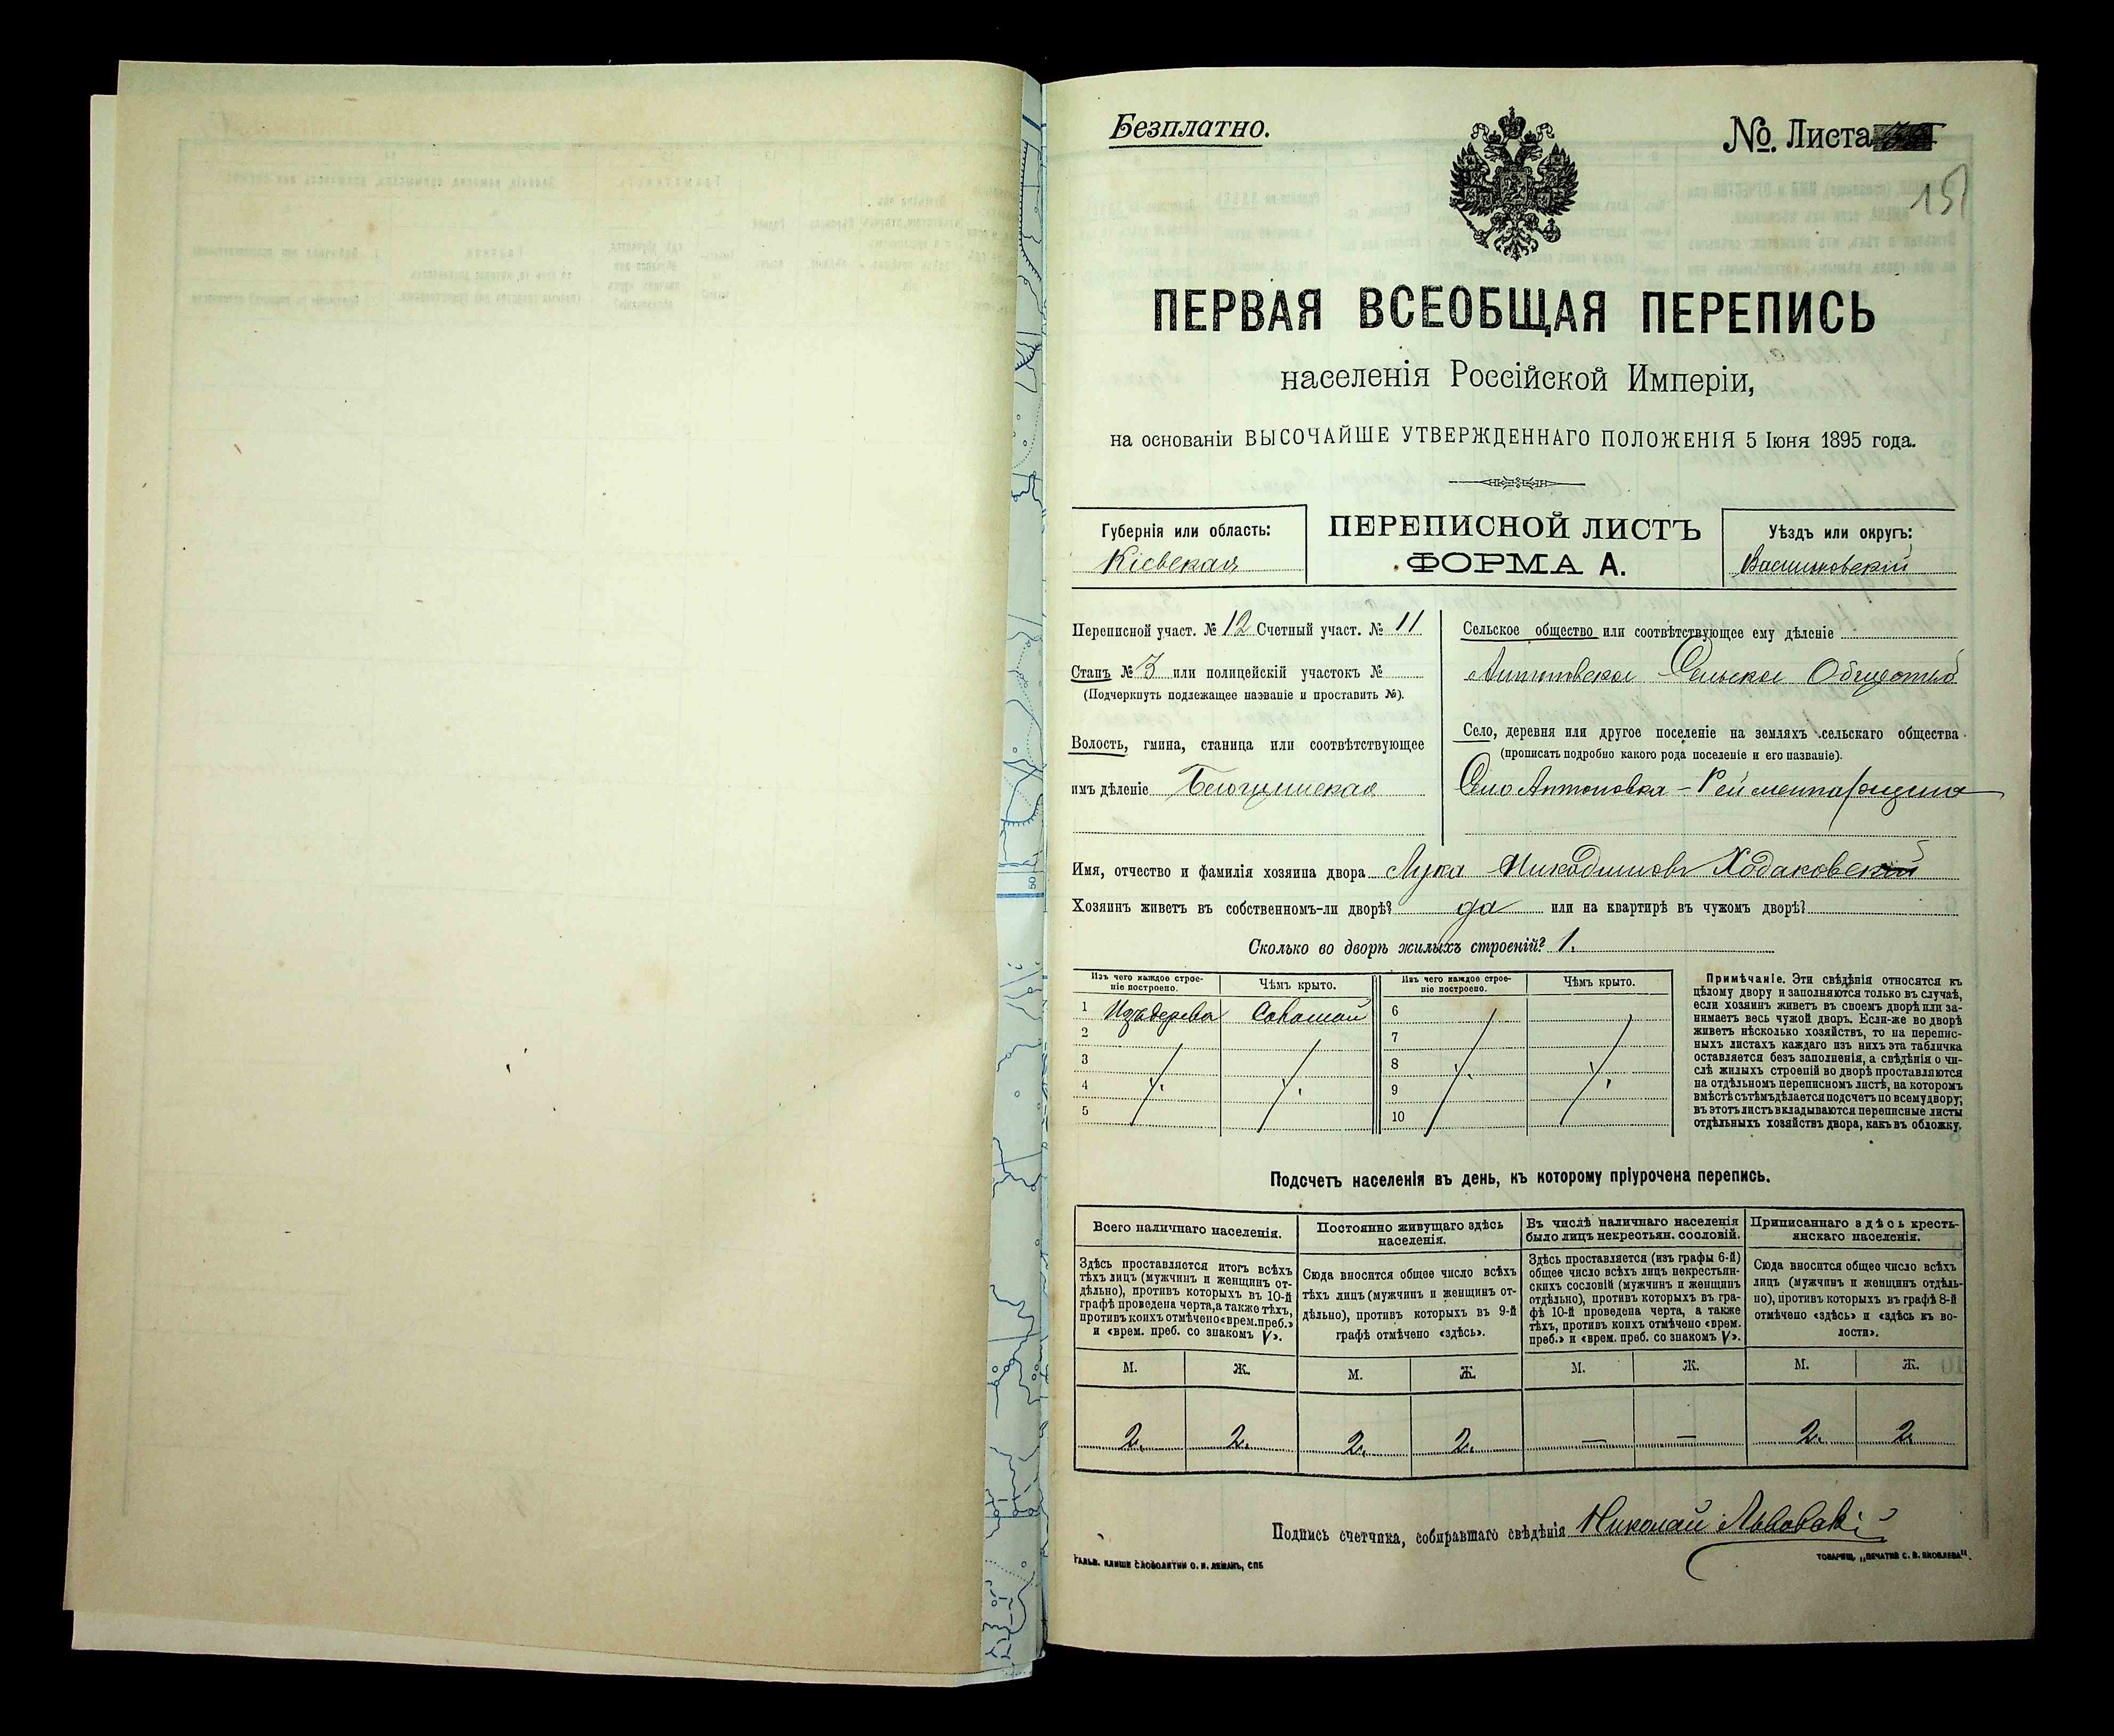 Безплатно.
№ Листа
151
ПЕРВАЯ ВСЕОБЩАЯ ПЕРЕПИСЬ
населенія Россійской Имперіи,
на основаніи ВЫСОЧАЙШЕ УТВЕРЖДЕННАГО ПОЛОЖЕНІЯ 5 Іюня 1895 года.
Губернія или область:
Кіевская
ПЕРЕПИСНОЙ ЛИСТЪ
ФОРМА А.
Уѣздъ или округъ:
Васильковскій
Переписной участ. № 12 Счетный участ. № 11
Станъ № 3 или полицейскій участокъ №
(Подчеркнуть подлежащее названіе и проставить №).
Волость, гмина, станица или соотвѣтствующее
имъ дѣленіе
Сельское общество или соотвѣтствующее ему дѣленіе
Антоновское Сельское Общество
Село, деревня или другое поселеніе на земляхъ сельскаго общества
(прописать подробно какого рода поселеніе и его названіе).
Село Антоновка - Рейментарщина
Имя, отчество и фамилія хозяина двора Лука Никодимовъ Ходаковскій
Хозяинъ живетъ въ собственномъ-ли дворѣ? да или на квартирѣ въ чужомъ дворѣ?
Сколько во дворѣ жилыхъ строеній? 1.
Изъ чего каждое строе-
ніе построено.
Чѣмъ крыто.
Изъ чего каждое строе-
ніе построено.
Чѣмъ крыто.
1 Изъ дерева Соломой 6
2 7
3 8
4 9
5 10
Примѣчаніе. Эти свѣдѣнія относятся къ
цѣлому двору и заполняются только въ случаѣ,
если хозяинъ живетъ въ своемъ дворѣ или за-
нимаетъ весь чужой дворъ. Если-же во дворѣ
живетъ нѣсколько хозяйствъ, то на перепис-
ныхъ листахъ каждаго изъ нихъ эта табличка
оставляется безъ заполненія, а свѣдѣнія о чи-
слѣ жилыхъ строеній во дворѣ проставляются
на отдѣльномъ переписномъ листѣ, на которомъ
вмѣстѣ съ тѣмъ дѣлается подсчетъ по всему двору;
въ этотъ листъ вкладываются переписные листы
отдѣльныхъ хозяйствъ двора, какъ въ обложку.
Подсчетъ населенія въ день, къ которому пріурочена перепись.
Всего наличнаго населенія.
Здѣсь проставляется итогъ всѣхъ
тѣхъ лицъ (мужчинъ и женщинъ от-
дѣльно), противъ которыхъ въ 10-й
графѣ проведена черта, а также тѣхъ,
противъ коихъ отмѣчено «врем. преб.»
и «врем. преб. со знакомъ V».
Постоянно живущаго здѣсь
населенія.
Сюда вносится общее число всѣхъ
тѣхъ лицъ (мужчинъ и женщинъ от-
дѣльно), противъ которыхъ въ 9-й
графѣ отмѣчено «здѣсь».
Въ числѣ наличнаго населенія
было лицъ некрестьян. сословій.
Здѣсь проставляется (изъ графы 6-й)
общее число всѣхъ лицъ некрестьян-
скихъ сословій (мужчинъ и женщинъ
отдѣльно), противъ которыхъ въ гра-
фѣ 10-й проведена черта, а также
тѣхъ, противъ коихъ отмѣчено «врем.
преб.» и «врем. преб. со знакомъ V».
Приписаннаго здѣсь кресть-
янскаго населенія.
Сюда вносится общее число всѣхъ
лицъ (мужчинъ и женщинъ отдѣль-
но), противъ которыхъ въ графѣ 8-й
отмѣчено «здѣсь» и «здѣсь къ во-
лости».
М. Ж. М. Ж. М. Ж. М. Ж.
2. 2. 2. 2. — — 2. 2
Подпись счетчика, собиравшаго свѣдѣнія Николай Львовскій
ГАЛЬВ. КЛИШЕ СЛОВОЛИТНИ О. И. ЛЕМАНЪ, СПБ
ТОВАРИЩ. „ПЕЧАТНЯ С. П. ЯКОВЛЕВА".
50